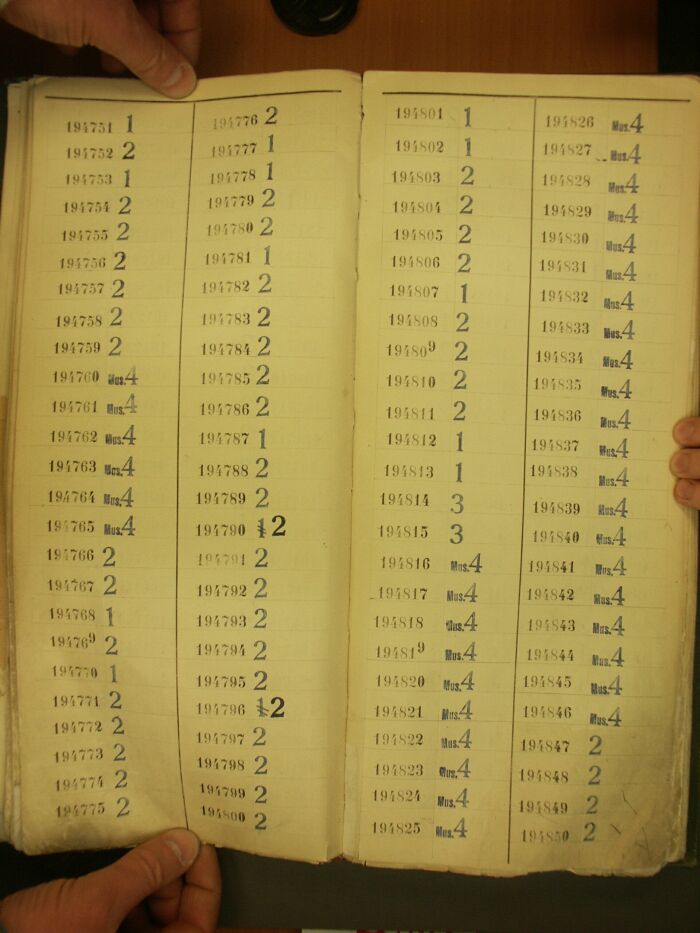 194751 1
194752 2
194753 1
194754 2
194755 2
194756 2
194757 2
194758 2
194759 2
194760 Mus.4
194761 Mus.4
194762 Mus.4
194763 Mus.4
194764 Mus.4
194765 Mus.4
194766 2
194767 2
194768 1
194769 2
194770 1
194771 2
194772 2
194773 2
194774 2
194775 2
194776 2
194777 1
194778 1
194779 2
194780 2
194781 1
194782 2
194783 2
194784 2
194785 2
194786 2
194787 1
194788 2
194789 2
194790 1 2
194791 2
194792 2
194793 2
194794 2
194795 2
194796 1 2
194797 2
194798 2
194799 2
194800 2
194801 1
194802 1
194803 2
194804 2
194805 2
194806 2
194807 1
194808 2
194809 2
194810 2
194811 2
194812 1
194813 1
194814 3
194815 3
194816 Mus.4
194817 Mus.4
194818 Mus.4
194819 Mus.4
194820 Mus.4
194821 Mus.4
194822 Mus.4
194823 Mus.4
194824 Mus.4
194825 Mus.4
194826 Mus.4
194827 Mus.4
194828 Mus.4
194829 Mus.4
194830 Mus.4
194831 Mus.4
194832 Mus.4
194833 Mus.4
194834 Mus.4
194835 Mus.4
194836 Mus.4
194837 Mus.4
194838 Mus.4
194839 Mus.4
194840 Mus.4
194841 Mus.4
194842 Mus.4
194843 Mus.4
194844 Mus.4
194845 Mus.4
194846 Mus.4
194847 2
194848 2
194849 2
194850 2